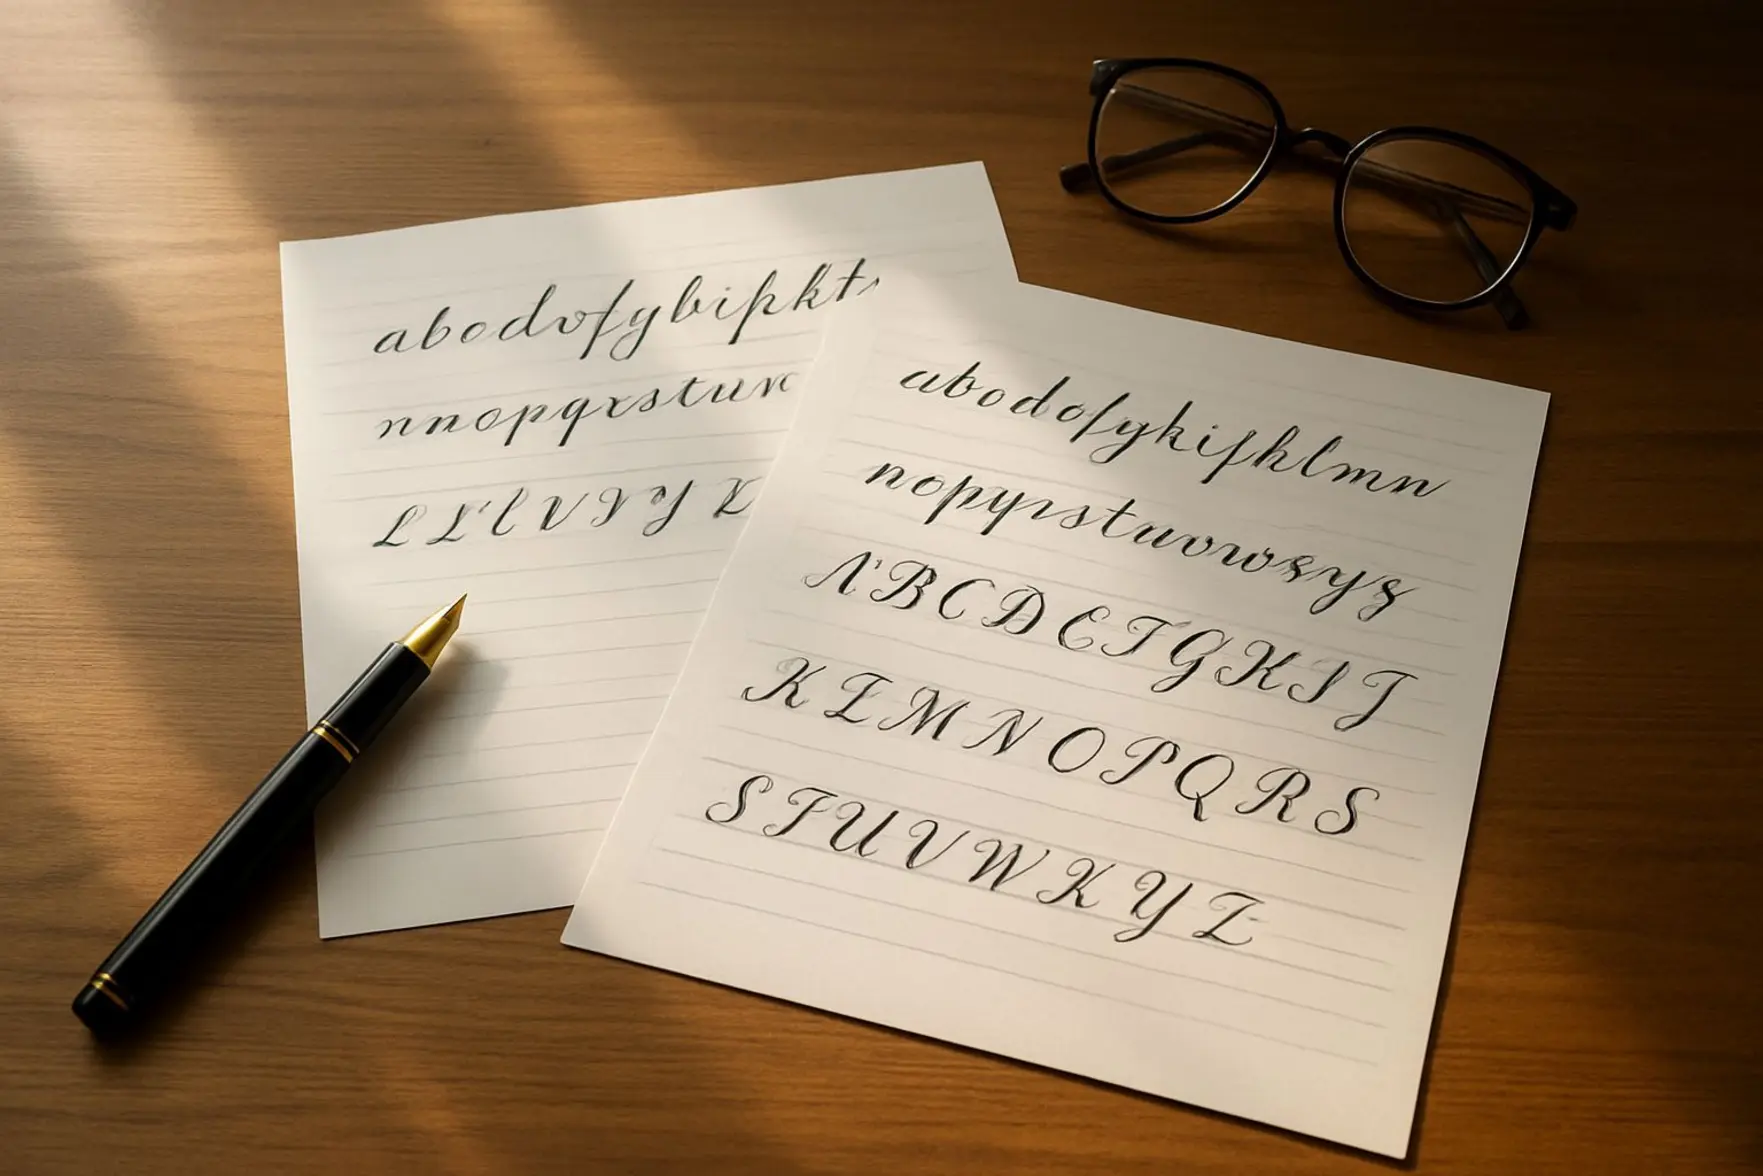 abodofybipkt
nnopqrstur
L L'l V I Y y I
abodofykifhlmn
nopyrstuvrwsyz
A'BCDETGKIJ
KLMNOPQRS
STUVWKYZ